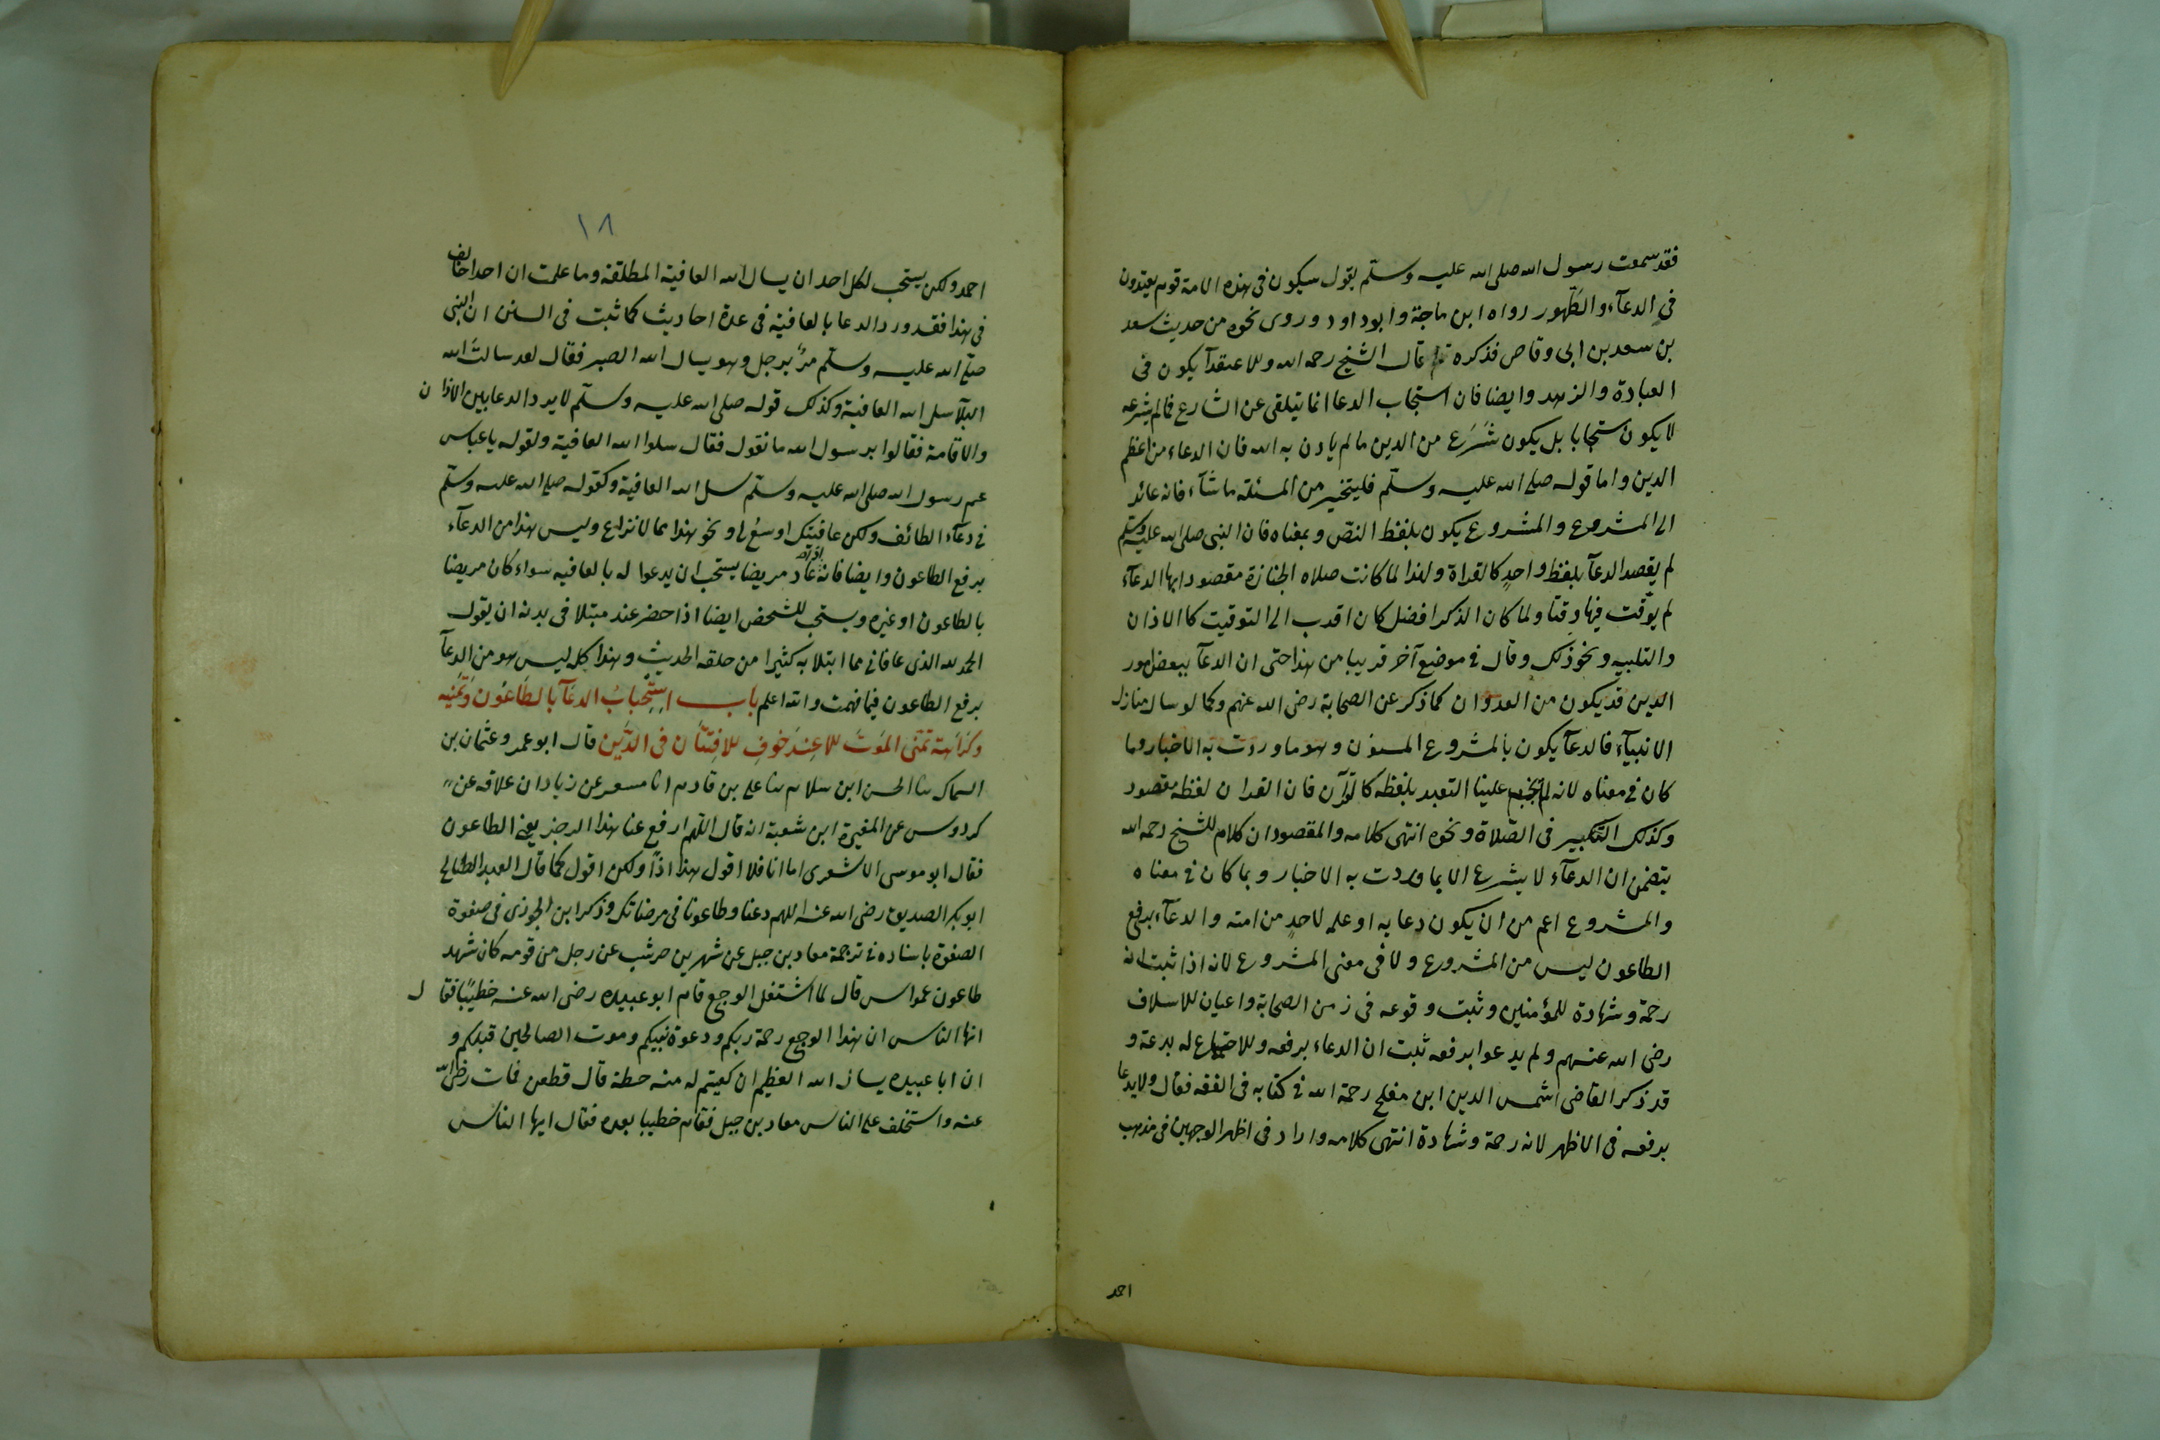 فقد سمعت رسول الله صلى الله عليه وسلم يقول سيكون فى هذه الامة قوم يعتدون
فى الدعآء والطهور رواه ابن ماجة وابو داود وروى نحوه من حديث سعد
بن سعد بن ابى وقاص فذكره قال الشيخ رحمه الله وللاعتقدآ يكون فى
العبادة والزهد وايضا فان استحباب الدعا انما يتلقى عن الشارع فما لم يشرعه
لا يكون مستحبابا بل يكون شَرَع من الدين ما لم يادن به الله فان الدعاء من اعظم
الدين واما قوله صلى الله عليه وسلم فليتخير من المسئلة ما شآء فانه عائد
الى المشروع والمشروع يكون بلفظ النص وبمعناه فان النبى صلى الله عليه وسلم
لم يقصد الدعآ بلفظ واحدٍ كالقراة ولهذا لما كانت صلاه الجنازة مقصودا بها الدعآء
لم يوقت فيها وقتا ولما كان الذكر افضل كان اقرب الى التوقيت كالاذان
والتلبيه ونحو ذلك وقال فى موضع آخر قريبا من هذا حتى ان الدعآ ببعض امور
الدين قد يكون من العدوان كما ذكر عن الصحابة رضى الله عنهم وكما لو سال منازل
الانبيآء فالدعآ يكون بالمشروع المسنون وهو ما وردت به الاخبار وما
كان فى معناه لانه لم علينا التعبد بلفظه كالقرآن فان القران لفظه مقصود
وكذلك التكبير فى الصلاة ونحوه انتهى كلامه والمقصود ان كلام الشيخ رحمه الله
يتضمن ان الدعآء لا يشرع الا بما وردت به الاخبار وبما كان فى معناه
والمشروع اعم من ان يكون دعا به او علمه لاحدٍ من امته والدعآء برفع
الطاعون ليس من المشروع ولا فى معنى المشروع لانه اذا ثبت انه
رحمة وشهادة للمؤمنين وثبت وقوعه فى زمن الصحابة واعيان للاسلاف
رضى الله عنهم ولم يدعوا برفعه ثبت ان الدعاء برفعه وللاجتماع له بدعة و
قد ذكر القاضى شمس الدين ابن مفلح رحمة الله فى كتابه فى الفقه فقال ولا يدعا
برفعه فى الاظهر لانه رحمة وشهادة انتهى كلامه واراد فى اظهر الوجهين فى مذهب
احمد
١٨
احمد ولكن يستحب لكل احد ان يسال الله العافية المطلقة وما علمت ان احدا خالف
فى هذا فقد ورد الدعا بالعافية فى عدة احاديث كما ثبت فى السنن ان النبى
صلى الله عليه وسلم مرّ برجل وهو يسال الله الصبر فقال لقد سالت الله
البلآ سل الله العافية وكذلك قوله صلى الله عليه وسلم لا يرد الدعا بين الاذان
والاقامة فقالوا يرسول الله ما نقول فقال سلوا الله العافية ولقوله يا عباس
عم رسول الله صلى الله عليه وسلم سل الله العافية وكقوله صلى الله عليه وسلم
فى دعآء الطائف ولكن عافيتك اوسع لى ونحو هذا مما لا نزاع وليس هذا من الدعآء
برفع الطاعون وايضا فانه اذا عاد مريضا يستحب ان يدعوا له بالعافيه سواء كان مريضا
بالطاعون او غيره ويستحب للشخص ايضا اذا حضر عند مبتلا فى بدنه ان يقول
الحمد لله الذى عافانى مما ابتلا به كثيرا من خلقه الحديث وهذا كله ليس هو من الدعآ
برفع الطاعون فيما فهمت والله اعلم باب استحباب الدعآ بالطاعون وتمنيه
وكراهته تمنى الموت للاعند خوف للافتتان فى الدين قال ابو عمرو عثمان بن
السماك ثنا الحسن ابن سلام ثنا على بن قادم انا مسعر عن زياد ان علاقه عن
كردوس عن المغيرة ابن شعبة انه قال اللهم ارفع عنا هذا الرجز يعنى الطاعون
فقال ابو موسى الاشعرى اما انا فلا اقول هذا اذآ ولكن اقول كما قال العبد الصالح
ابو بكر الصديق رضى الله عنه اللهم دعنا وطاعونا فى مرضاتك وذكر ابن الجوزى فى صفوة
الصفوة باسناده فى ترجمة معاد بن جبل عن شهر بن حوشب عن رجل من قومه كان شهد
طاعون عمواس قال لما اشتغل الوجع قام ابو عبيده رضى الله عنه خطيبًا فقال
ايها الناس ان هذا الوجع رحمة ربكم ودعوة نبيكم وموت الصالحين قبلكم و
ان ابا عبيده يسال الله العظيم ان يقسم له منه حظه قال فطعن فمات رضى الله
عنه واستخلف على الناس معاد بن جبل فقام خطيبا بعده فقال ايها الناس